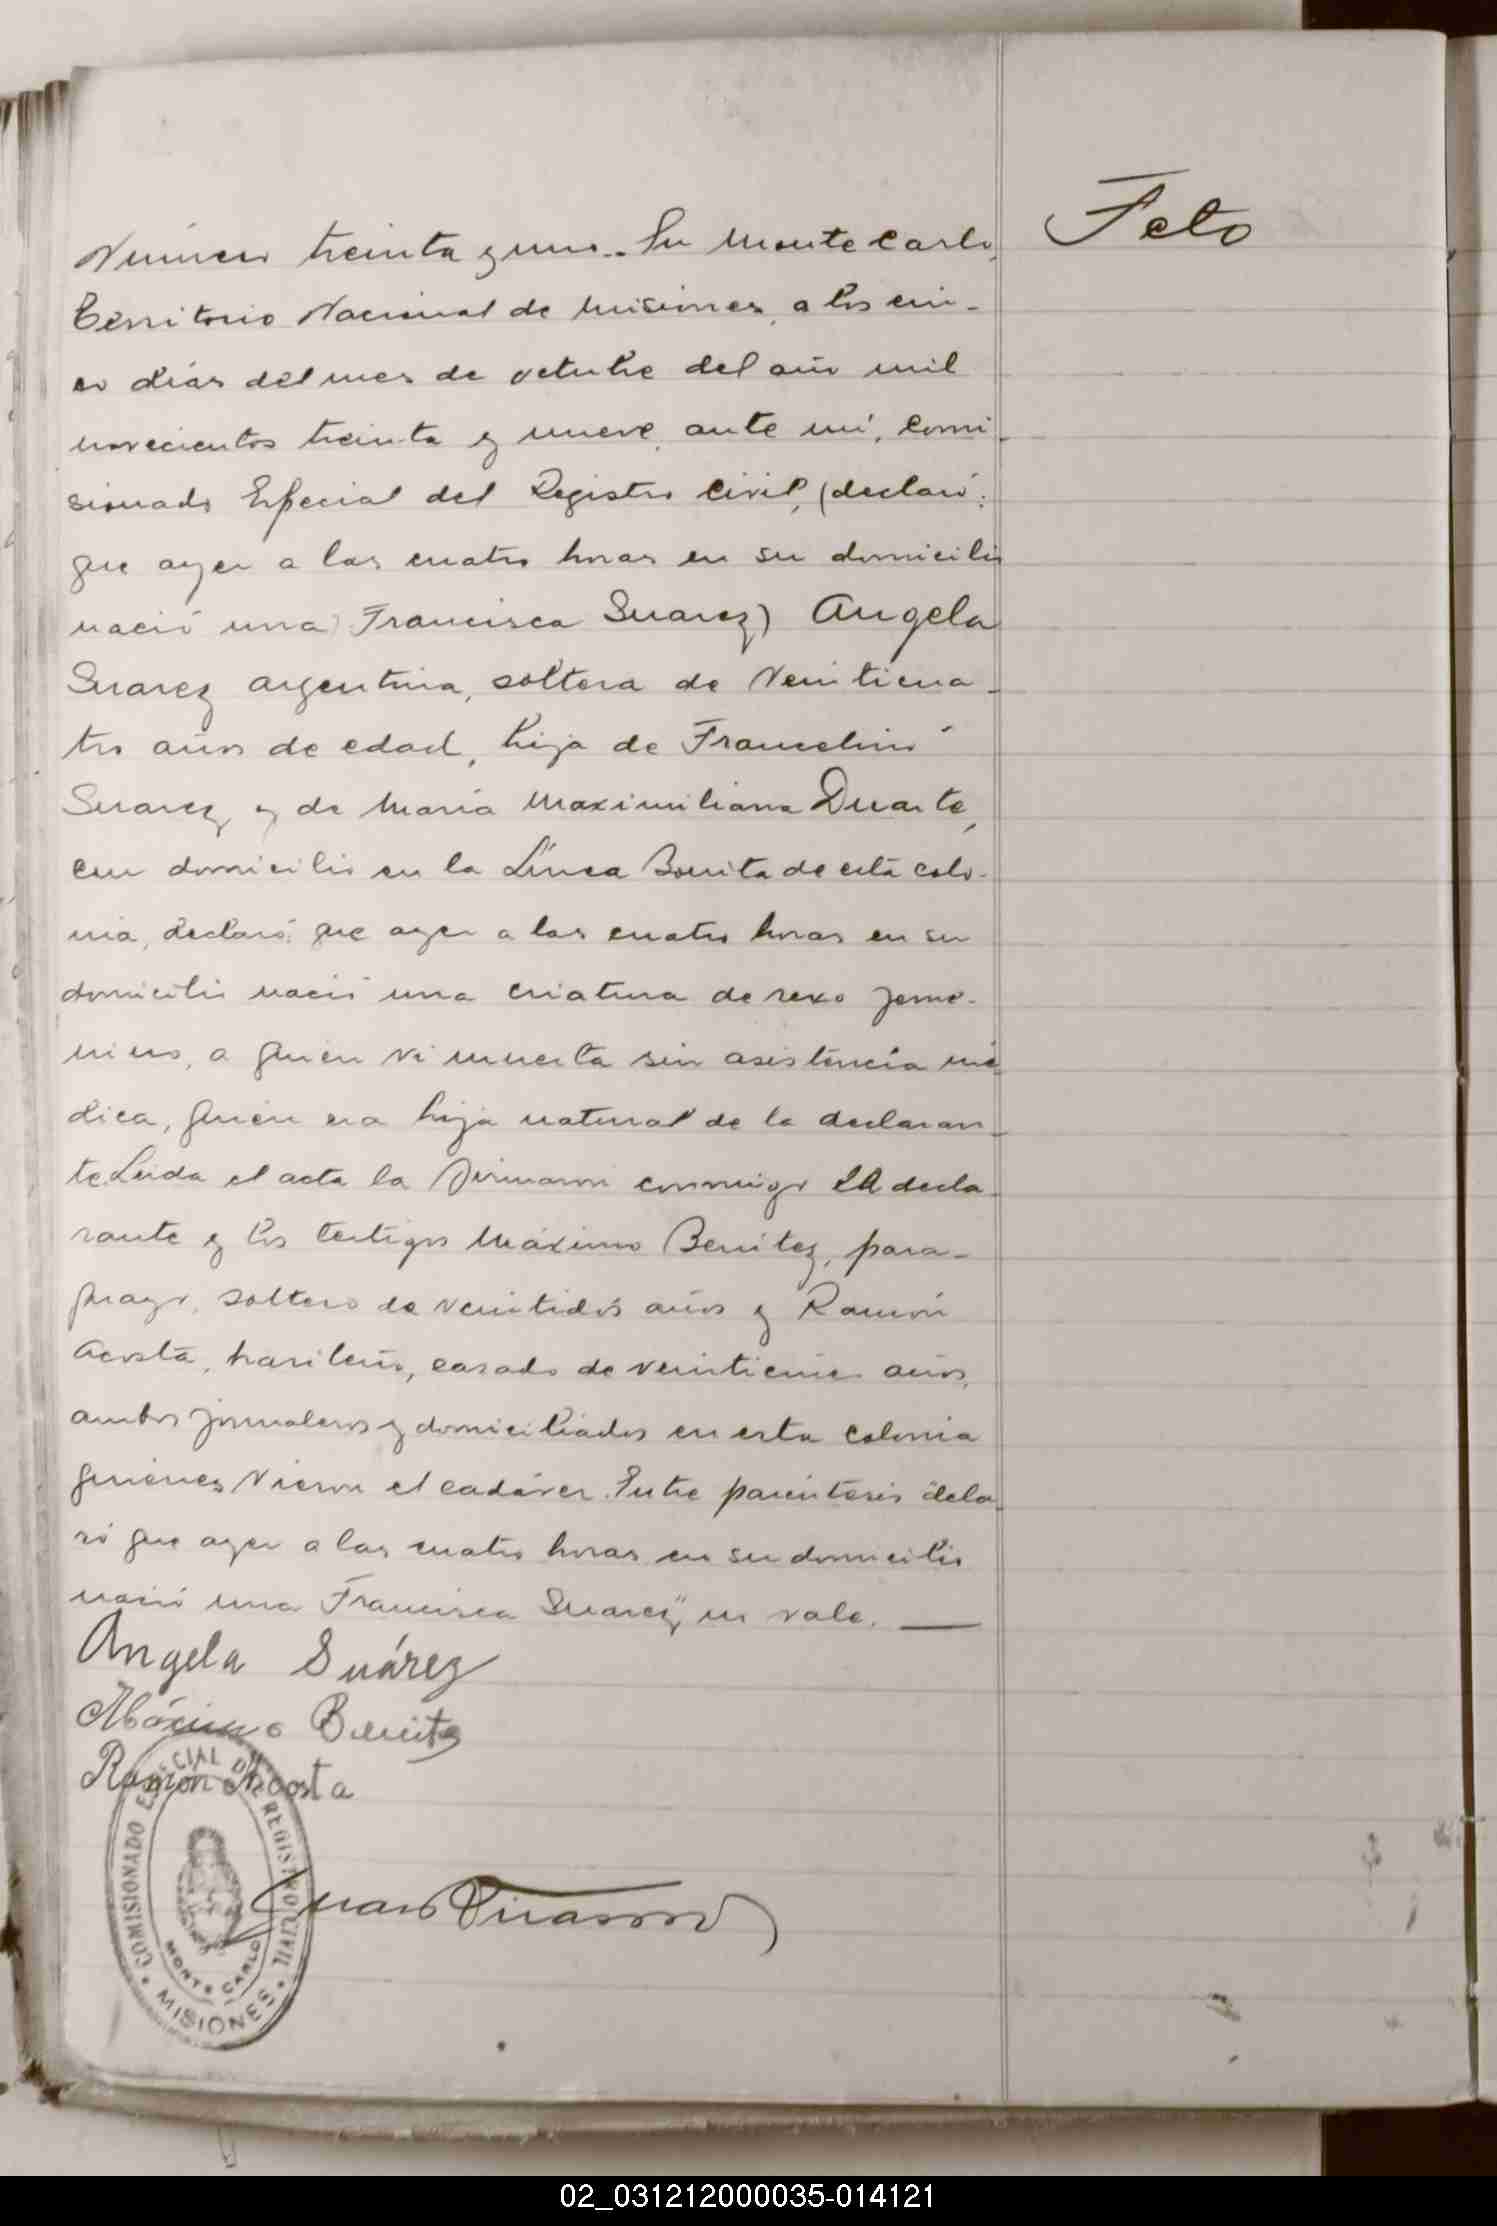 Feto
Número treinta y uno.. En Monte Carlo,
Territorio Nacional de Misiones, a los cin-
co días del mes de octubre del año mil
novecientos treinta y nueve, ante mí, Comi-
sionado Especial del Registro Civil, (declaró:
que ayer a las cuatro horas en su domicilio
nació una Francisca Suarez) Angela
Suarez argentina, soltera de veinticua-
tro años de edad, hija de Francelino
Suarez y de María Maximiliana Duarte,
con domicilio en la Línea Bonita de esta colo-
nia, declaró: que ayer a las cuatro horas en su
domicilio nació una criatura de sexo feme-
nino, a quien vi muerta sin asistencia mé-
dica, quien era hija natural de la declaran-
te. Leida el acta la firmaron conmigo LA decla-
rante y los testigos Máximo Benitez, para-
guayo, soltero de veintidós años y Ramón
Acosta, brasileño, casado de veinticinco años,
ambos jornaleros y domiciliados en esta colonia
quienes vieron el cadáver. Entre paréntesis "decla
ró que ayer a las cuatro horas en su domicilio
nació una Francisca Suarez", no vale. —
Angela Suárez
Máximo Benitez
Ramón Acosta
COMISIONADO ESPECIAL DEL REGISTRO CIVIL
MONTE CARLO
MISIONES
02_031212000035-014121